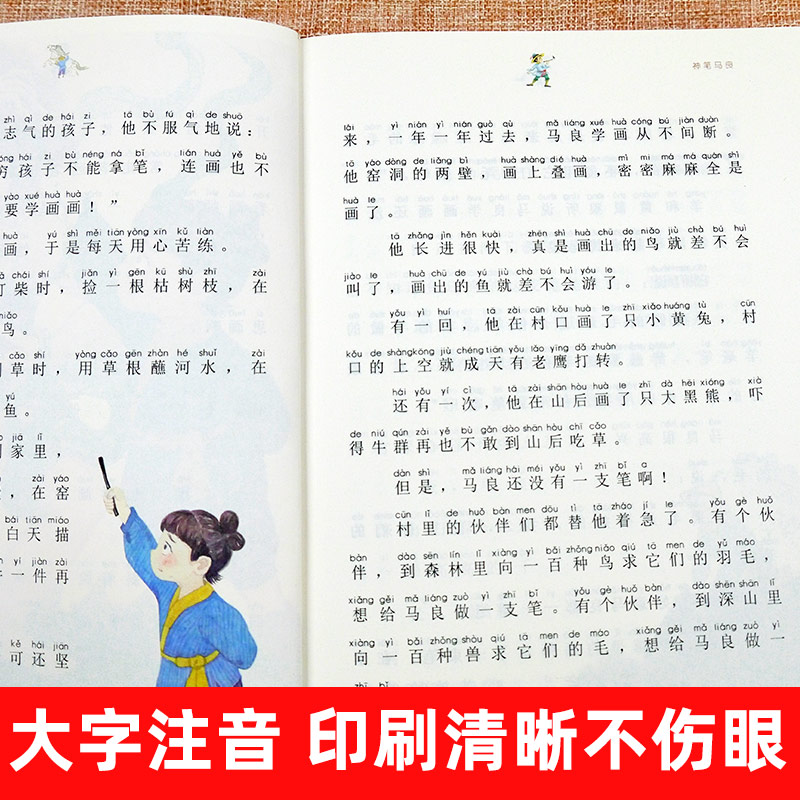 zhì qì de hái zi tā bù fú qì de shuō
志气的孩子，他不服气地说：
hái zi bù néng ná bǐ lián huà yě bù
穷孩子不能拿笔，连画也不
yào xué huà huà
要学画画！”
huà yú shì měi tiān yòng xīn kǔ liàn
画，于是每天用心苦练。
chái shí jiǎn yì gēn kū shù zhī zài
打柴时，捡一根枯树枝，在
niǎo
鸟。
cǎo shí yòng cǎo gēn zhàn hé shuǐ zài
割草时，用草根蘸河水，在
yú
鱼。
jiā lǐ
回家里，
zài yáo
，在窑
bái tiān miáo
白天描
yí jiàn zài
一件再
kě hái jiān
可还坚
神笔马良
lái yì nián yì nián guò qù mǎ liáng xué huà cóng bú jiàn duàn
来，一年一年过去，马良学画从不间断。
tā yáo dòng de liǎng bì huà shàng dié huà mì mì má má quán shì
他窑洞的两壁，画上叠画，密密麻麻全是
huà le
画了。
tā zhǎng jìn hěn kuài zhēn shì huà chū de niǎo jiù chà bú huì
他长进很快，真是画出的鸟就差不会
jiào le huà chū de yú jiù chà bú huì yóu le
叫了，画出的鱼就差不会游了。
yǒu yì huí tā zài cūn kǒu huà le zhī xiǎo huáng tù cūn
有一回，他在村口画了只小黄兔，村
kǒu de shàng kōng jiù chéng tiān yǒu lǎo yīng dǎ zhuàn
口的上空就成天有老鹰打转。
hái yǒu yí cì tā zài shān hòu huà le zhī dà hēi xióng xià
还有一次，他在山后画了只大黑熊，吓
de niú qún zài yě bù gǎn dào shān hòu chī cǎo
得牛群再也不敢到山后吃草。
dàn shì mǎ liáng hái méi yǒu yì zhī bǐ a
但是，马良还没有一支笔啊！
cūn lǐ de huǒ bàn men dōu tì tā zháo jí le yǒu gè huǒ
村里的伙伴们都替他着急了。有个伙
bàn dào sēn lín lǐ xiàng yì bǎi zhǒng niǎo qiú tā men de yǔ máo
伴，到森林里向一百种鸟求它们的羽毛，
xiǎng gěi mǎ liáng zuò yì zhī bǐ yǒu gè huǒ bàn dào shēn shān lǐ
想给马良做一支笔。有个伙伴，到深山里
xiàng yì bǎi zhǒng shòu qiú tā men de máo xiǎng gěi mǎ liáng zuò yì
向一百种兽求它们的毛，想给马良做一
zhī bǐ
大字注音 印刷清晰不伤眼